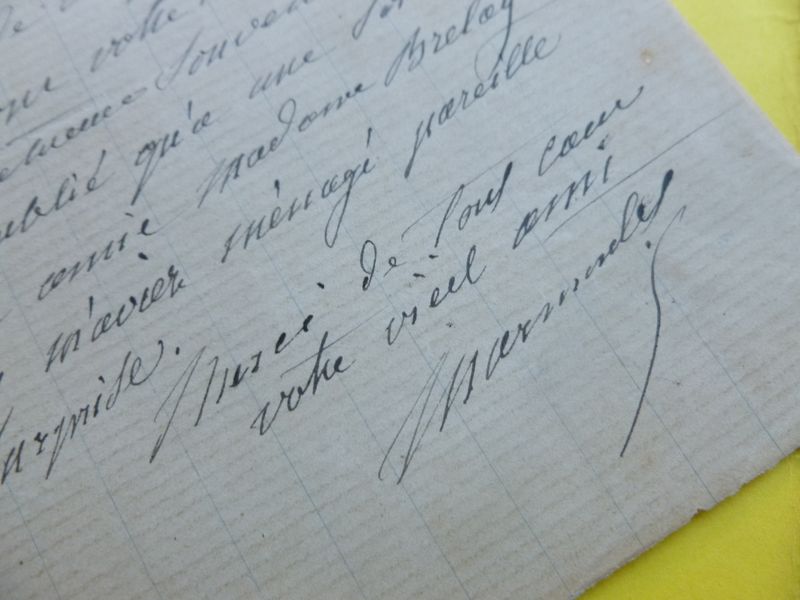 de
votre
Souven
qu'a une
amie Madame Breläy
m'aviez ménagé pareille
surprise.
Merci de tout cœur
votre vieil ami
Marmontel